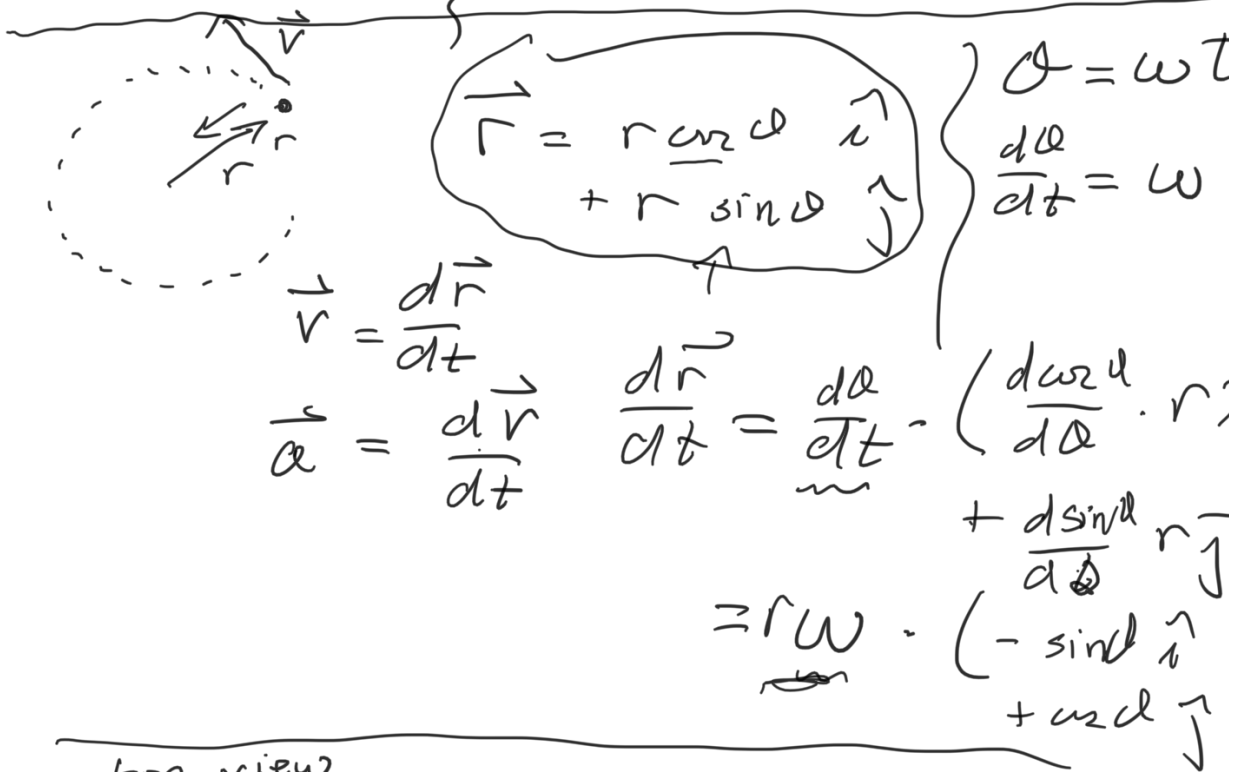 v⃗
r
r
r⃗ = r cosθ î
+ r sinθ ĵ
θ = ωt
dθ/dt = ω
v⃗ = dr⃗/dt
a⃗ = dv⃗/dt
dr⃗/dt = dθ/dt · (dcosθ/dθ · r
+ dsinθ/dθ r j
= rω · (- sinθ î
+ cosθ ĵ